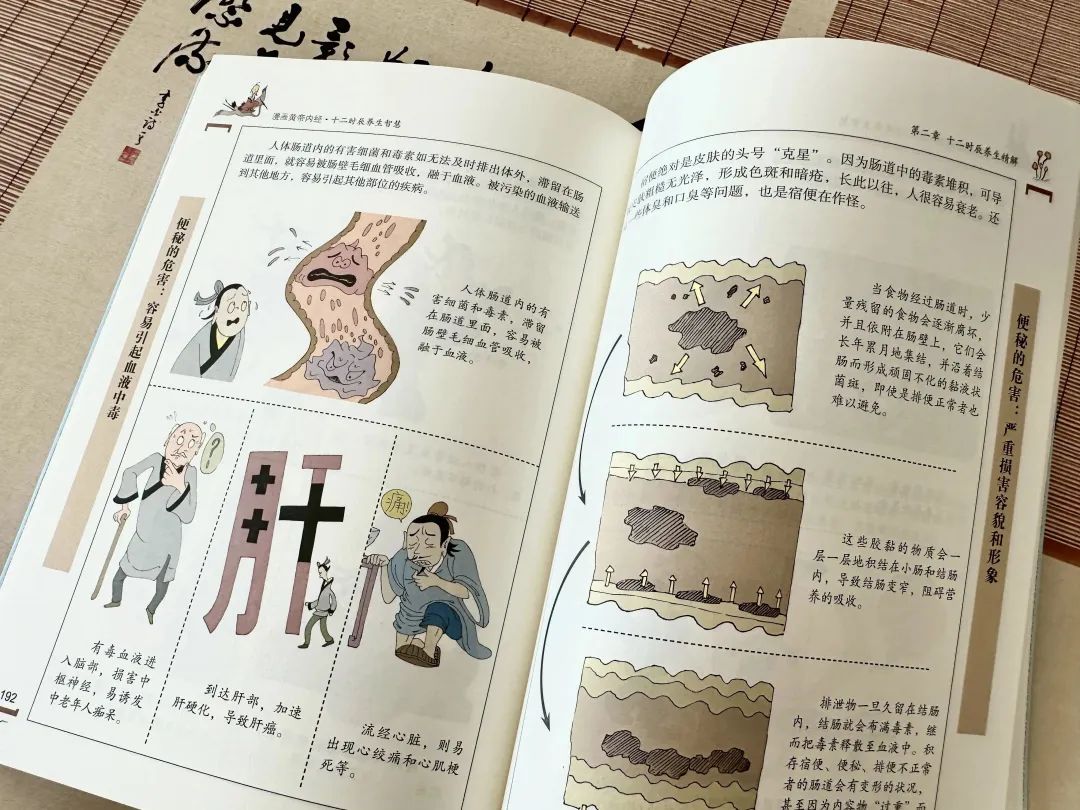 漫画黄帝内经·十二时辰养生智慧
人体肠道内的有害细菌和毒素如无法及时排出体外，滞留在肠
道里面，就容易被肠壁毛细血管吸收，融于血液。被污染的血液输送
到其他地方，容易引起其他部位的疾病。
便秘的危害：容易引起血液中毒
人体肠道内的有
害细菌和毒素，滞留
在肠道里面，容易被
肠壁毛细血管吸收，
融于血液。
?
肝
痛!
有毒血液进
入脑部，损害中
枢神经，易诱发
中老年人痴呆。
到达肝部，加速
肝硬化，导致肝癌。
流经心脏，则易
出现心绞痛和心肌梗
死等。
192
第二章 十二时辰养生精解
宿便绝对是皮肤的头号“克星”。因为肠道中的毒素堆积，可导
皮肤粗糙无光泽，形成色斑和暗疮，长此以往，人很容易衰老。还
一些体臭和口臭等问题，也是宿便在作怪。
便秘的危害：严重损害容貌和形象
当食物经过肠道时，少
量残留的食物会逐渐腐坏，
并且依附在肠壁上，它们会
长年累月地集结，并沿着结
肠而形成顽固不化的黏液状
菌斑，即使是排便正常者也
难以避免。
这些胶黏的物质会一
层一层地积结在小肠和结肠
内，导致结肠变窄，阻碍营
养的吸收。
排泄物一旦久留在结肠
内，结肠就会布满毒素，继
而把毒素释散至血液中。积
存宿便、便秘、排便不正常
者的肠道会有变形的状况，
甚至因为内容物“过重”而